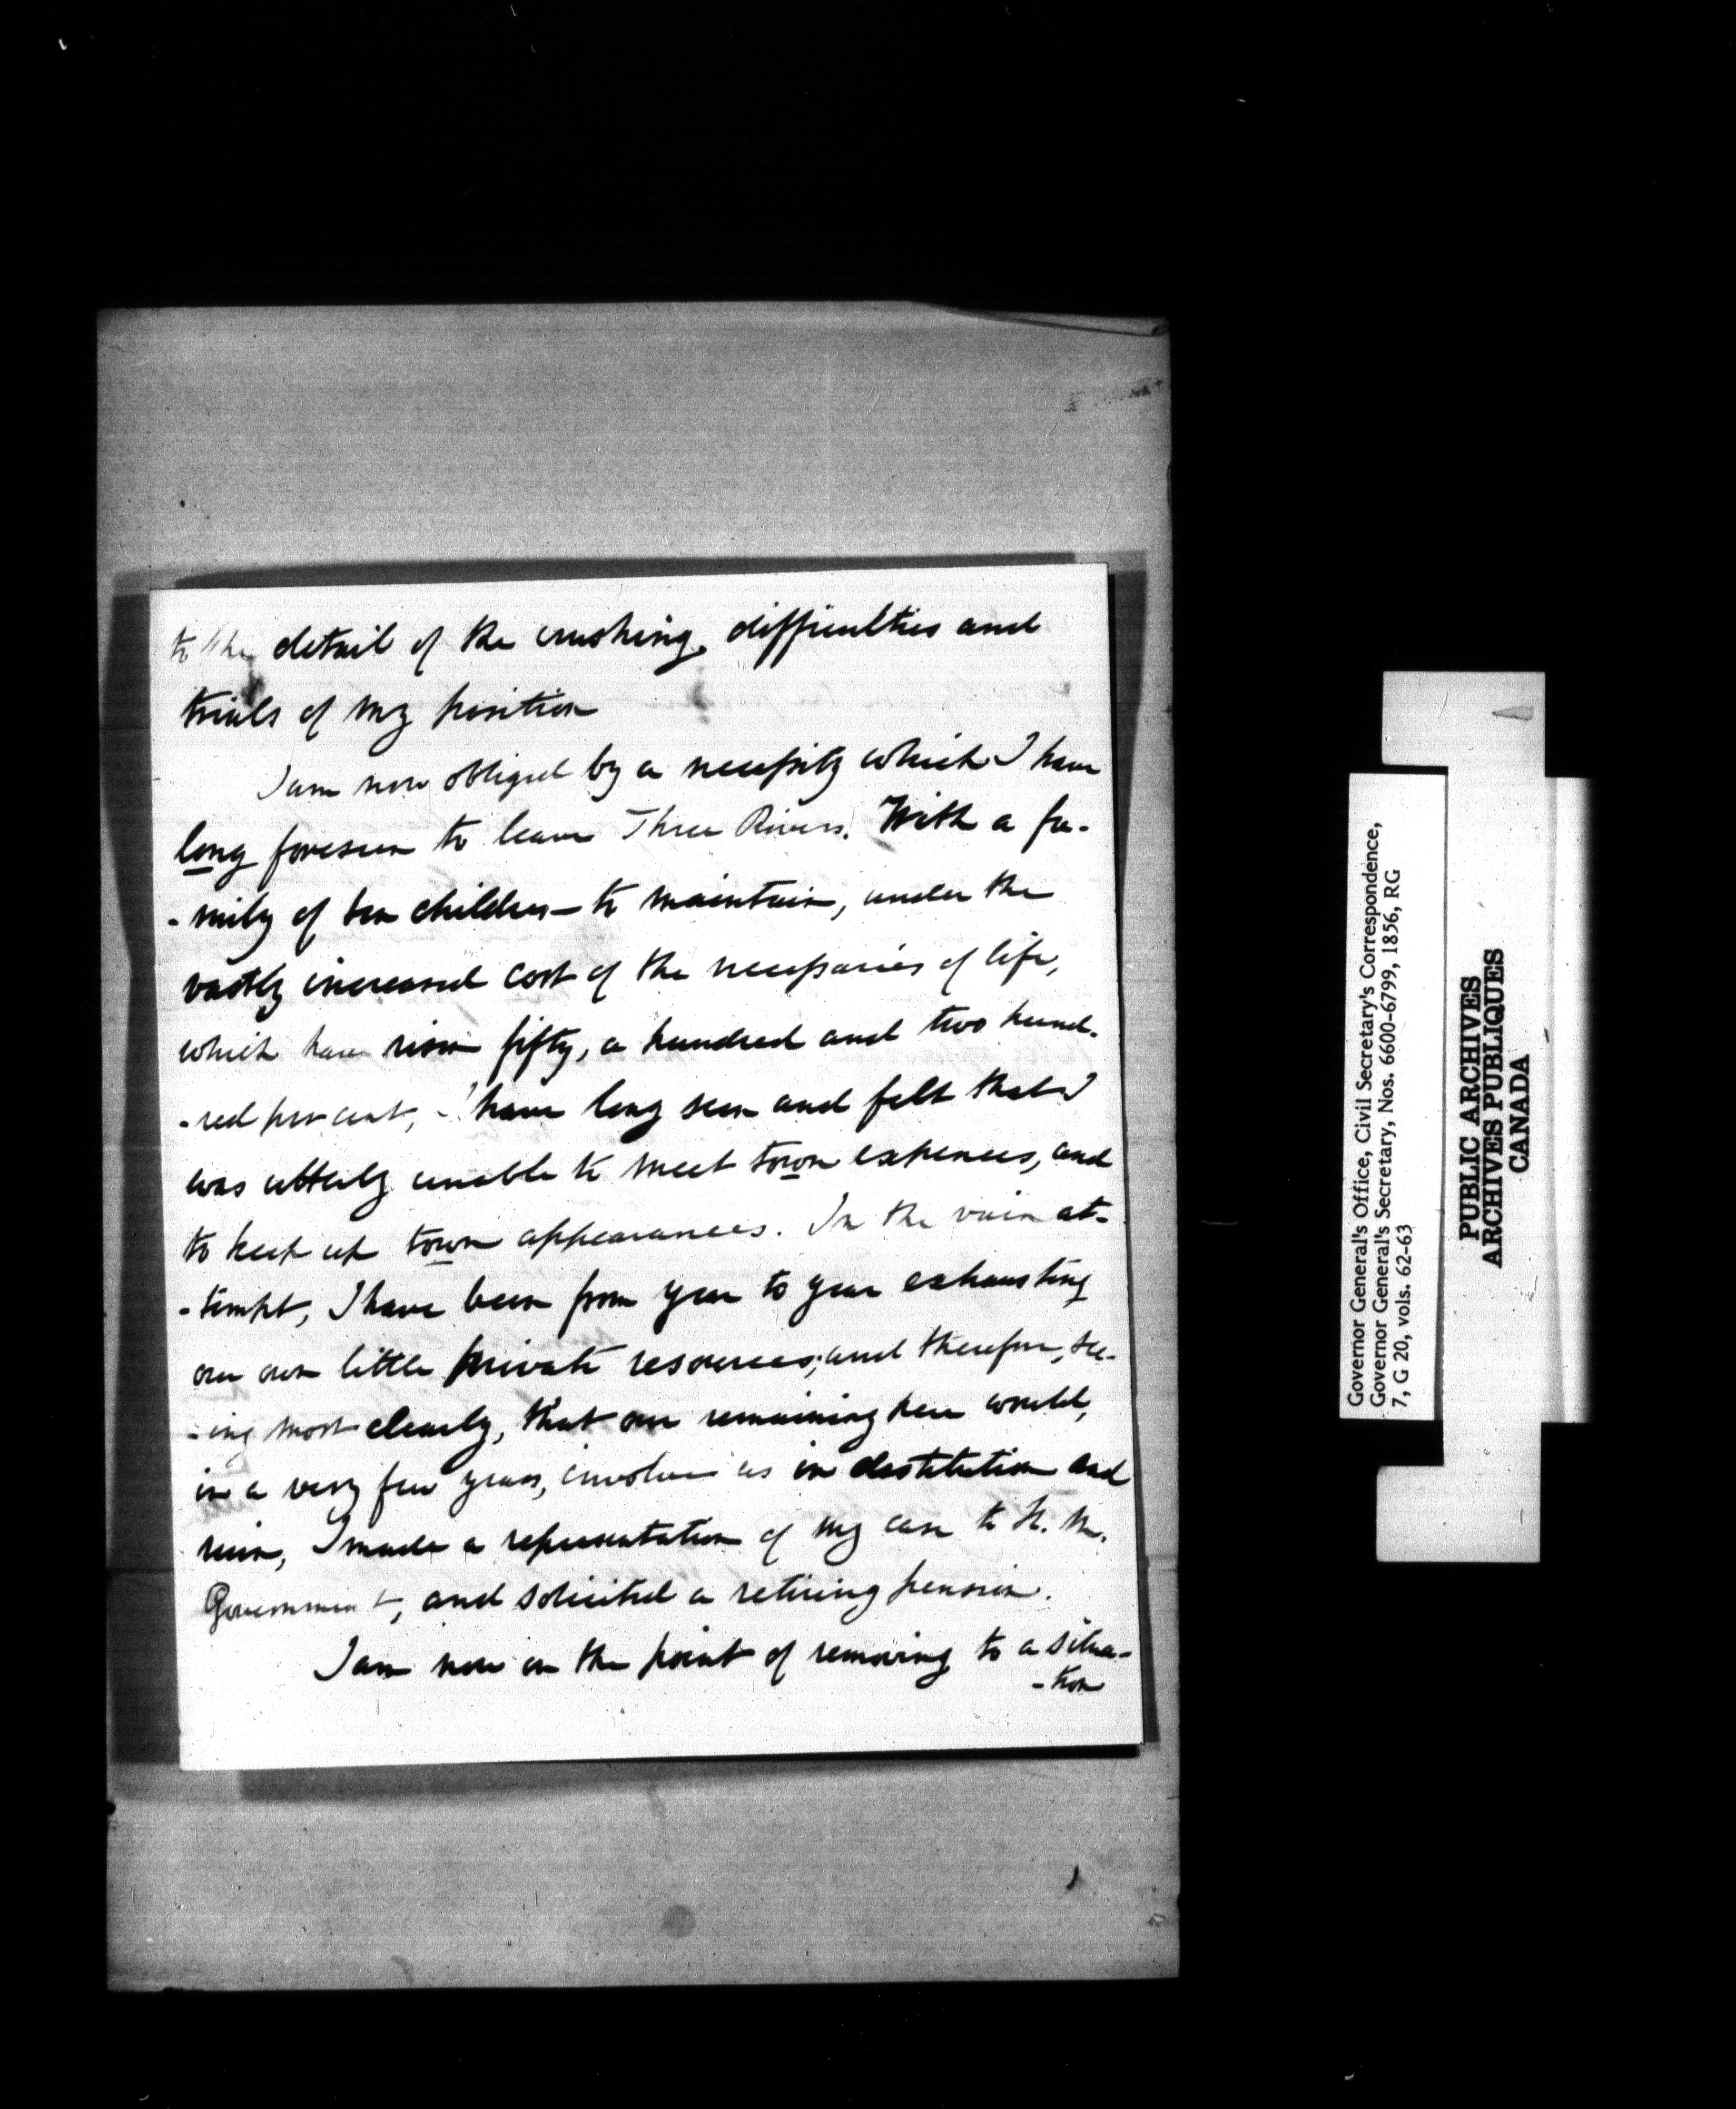 to the detail of the crushing difficulties and
trials of my position
I am now obliged by a necessity which I have
long foreseen to leave Three Rivers. With a fa-
-mily of ten children to maintain, under the
vastly increased cost of the necessaries of life,
which have risen fifty, a hundred and two hund-
-red per cent, - I have long seen and felt that I
was utterly unable to meet town expences, and
to keep up town appearances. In the vain at-
-tempt, I have been from year to year exhausting
our own little private resources; and therefore, see-
-ing most clearly, that our remaining here would,
in a very few years, involve us in destitution and
ruin, I made a representation of my case to H. M.
Government, and solicited a retiring pension.
I am now on the point of removing to a situa-
-tion
Governor General's Office, Civil Secretary's Correspondence,
Governor General's Secretary, Nos. 6600-6799, 1856, RG
7, G 20, vols. 62-63
PUBLIC ARCHIVES
ARCHIVES PUBLIQUES
CANADA